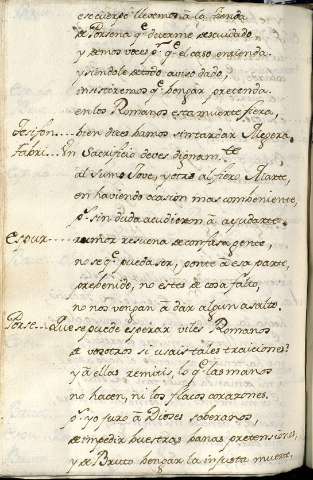 ese cuerpo llevemos â la tienda
de Porsena q̃ duerme descuidado,
y demos voces p.ª q̃ el caso entienda.
y siendole de todo aviso dado,
insistiremos q̃ bengar pretenda
en los Romanos esta muerte fiera,
Tesifon.... bien dices bamos sin tardar Megera.
Fabri... Un Sacrificio deves dignam.te
al Sumo Jove, y otro al fiero Marte,
en haviendo ocasion mas combeniente,
p.s sin duda acudieron â ayudarte.
Espur...... rumor resuena de confusa gente,
no se q̃ pueda ser, ponte â esa parte,
prebenido, no estes de cosa falto,
no nos vengan â dar algun asalto.
Porse... Que se puede esperar viles Romanos
de vosotros si usais tales traiciones?
y â ellas remitis, lo q̃ las manos
no hacen, ni los flacos corazones.
p.s yo juro â Dioses soberanos,
de impedir vuestras banas pretensiones,
y de Bruto bengar la injusta muerte,
8